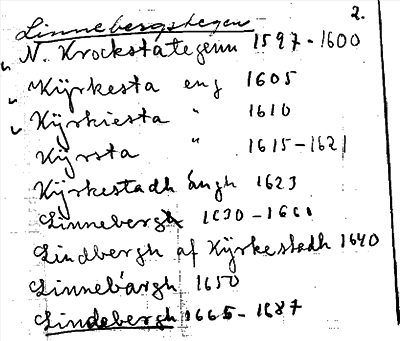 2.
Linnebergshegen
N. Krockstategenn 1597-1600
Kÿrkesta eng 1605
Kÿrkiesta " 1610
Kÿrsta " 1615-1621
Kÿrkestadh ängh 1623
Linnebergh 1630-1660
Lindbergh af Kÿrkestedh 1640
Linnebärgh 1650
Lindebergh 1665-1687